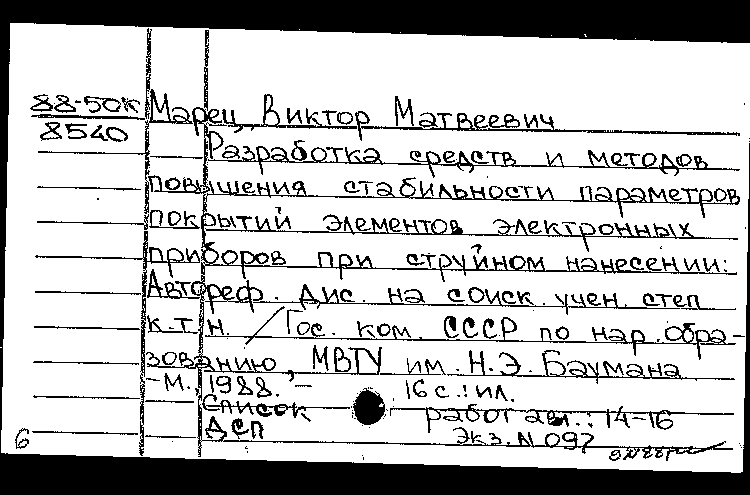 88-50к Марец, Виктор Матвеевич
8540
Разработка средств и методов
повышения стабильности параметров
покрытий элементов электронных
приборов при струйном нанесении:
Автореф. дис. на соиск. учен. степ
к.т.н. / Гос. ком. СССР по нар. обра-
зованию, МВТУ им. Н.Э. Баумана
-М., 1988. - 16 с.: ил.
Список работ авт.: 14-16
ДСП Экз. N 097
6